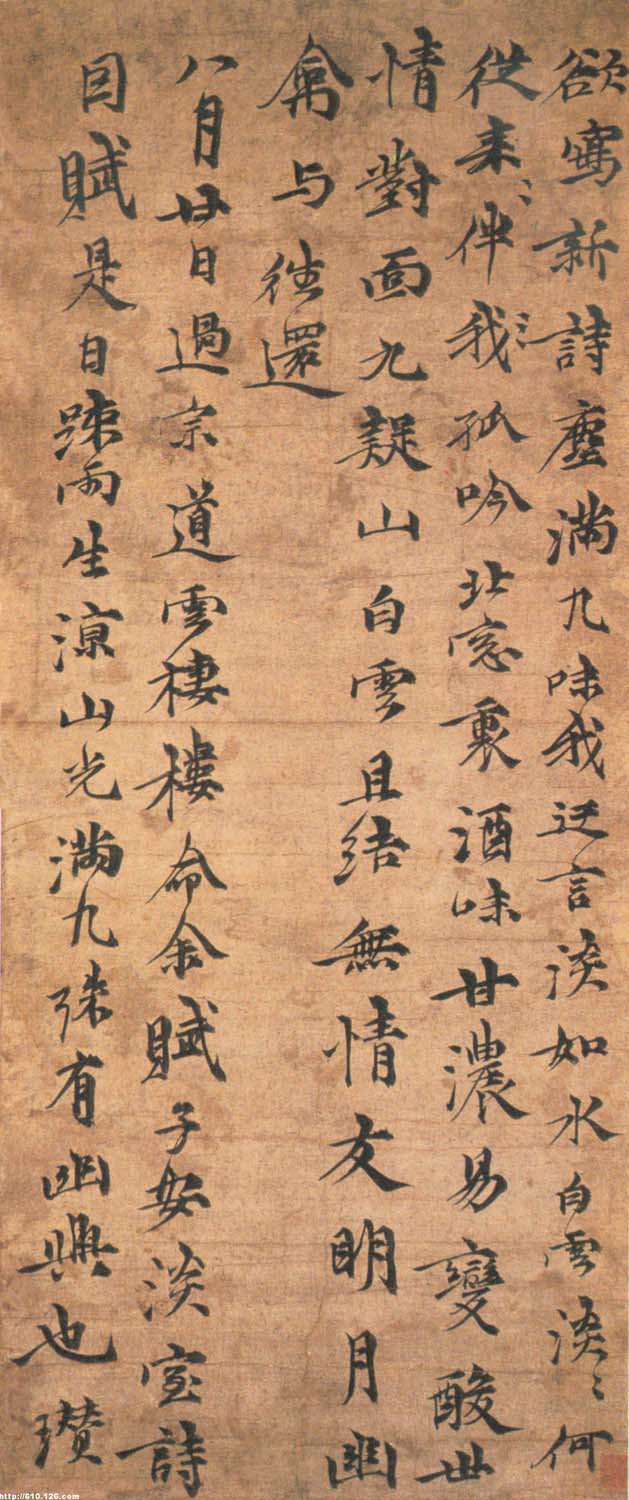 欲寫新詩塵滿几味我迂言淡如水白雲淡〻何
從来〻伴我〻孤吟北窓裏酒味甘濃易變酸世
情對面九疑山白雲且結無情友明月幽
禽与往還
八月廿日過宗道雲棲樓命余賦子安淡室詩
因賦是日疎雨生涼山光滿几殊有幽興也瓚
http://610.126.com